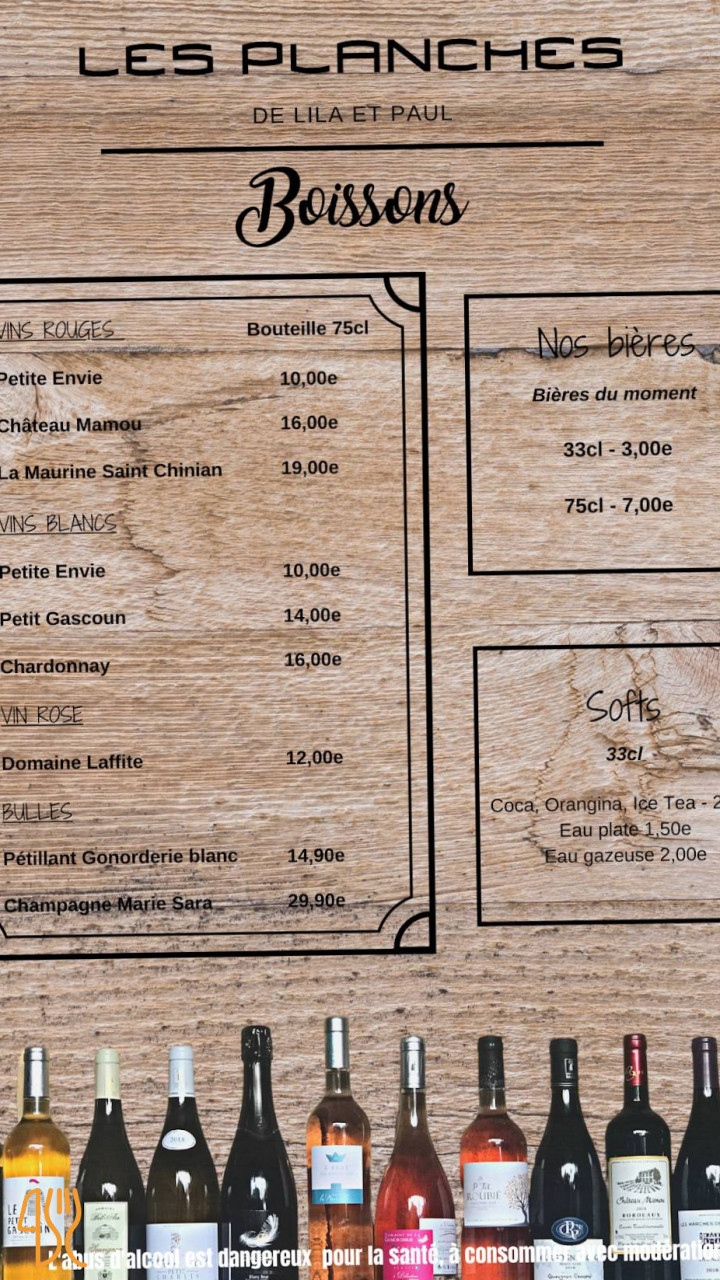 LES PLANCHES
DE LILA ET PAUL
Boissons
VINS ROUGES Bouteille 75cl
Petite Envie 10,00e
Château Mamou 16,00e
La Maurine Saint Chinian 19,00e
VINS BLANCS
Petite Envie 10,00e
Petit Gascoun 14,00e
Chardonnay 16,00e
VIN ROSE
Domaine Laffite 12,00e
BULLES
Pétillant Gonorderie blanc 14,90e
Champagne Marie Sara 29,90e
Nos bières
Bières du moment
33cl - 3,00e
75cl - 7,00e
Softs
33cl
Coca, Orangina, Ice Tea - 2
Eau plate 1,50e
Eau gazeuse 2,00e
2018
Château Mamou
BORDEAUX
L'abus d'alcool est dangereux pour la santé, à consommer avec modération